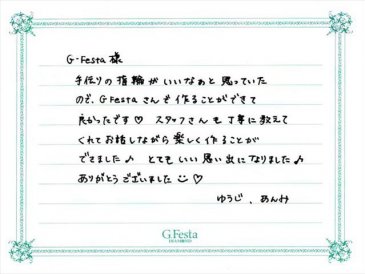 G-Festa 様
手作りの指輪がいいなぁと思っていた
ので、G Festaさんで作ることができて
良かったです♡ スタッフさんも丁寧に教えて
くれてお話しながら楽しく作ることが
できました♪ とてもいい思い出になりました♪
ありがとうございました☺♡
ゆうじ、あんみ
G.Festa
DIAMOND